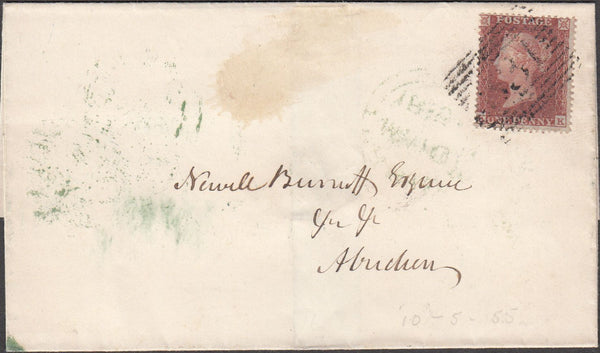 POSTAGE
ONE PENNY K
Newell Burnett Esquire
&c &c
Aberdeen
10-5-55